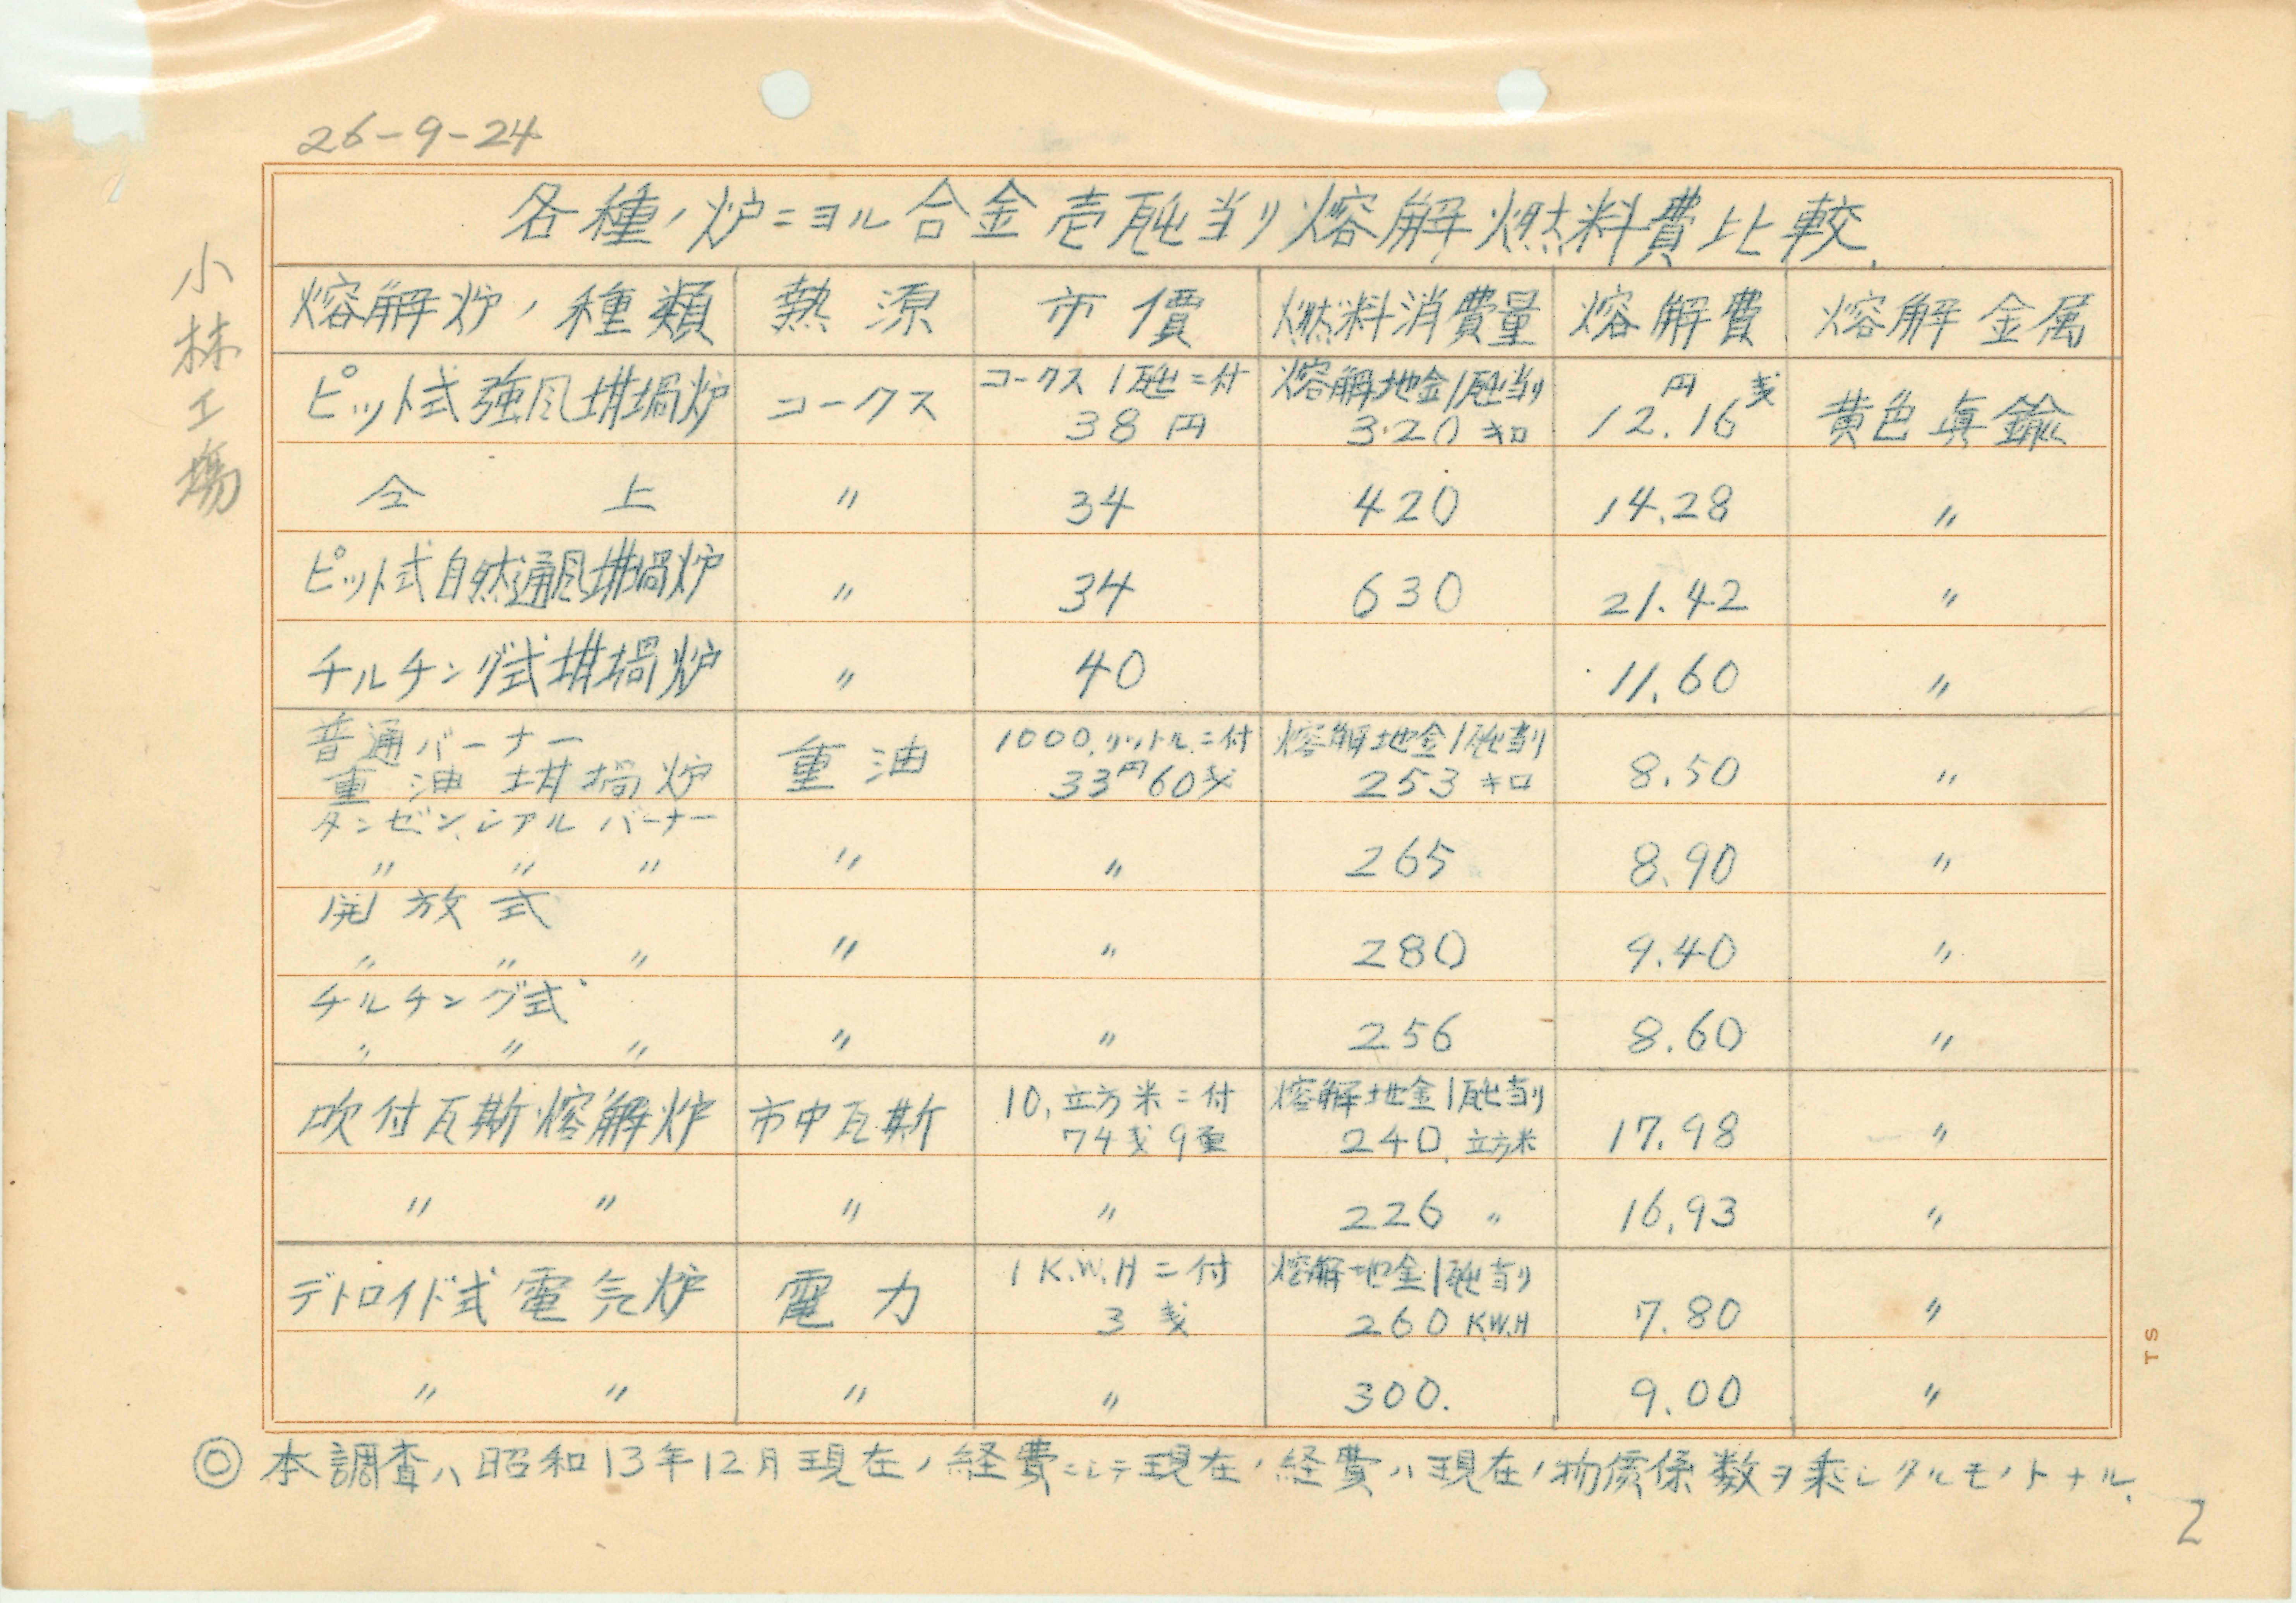 26-9-24
小林工場
各種ノ炉ニヨル合金壱瓲当リ熔解燃料費比較.
熔解炉ノ種類 熱源 市價 燃料消費量 熔解費 熔解金属
ピット式強風坩堝炉 コークス コークス1瓲ニ付 38円 熔解地金1瓲当リ 3.20キロ 12円.16戔 黄色真鍮
仝上 〃 34 420 14.28 〃
ピット式自然通風坩堝炉 〃 34 630 21.42 〃
チルチング式坩堝炉 〃 40 11.60 〃
普通バーナー
重油坩堝炉 重油 1000.リットル.ニ付 33円60戔 熔解地金1瓲当リ 253キロ 8.50 〃
タンゼンシアルバーナー
〃 〃 〃 〃 〃 265 8.90 〃
開放式
〃 〃 〃 〃 〃 280 9.40 〃
チルチング式
〃 〃 〃 〃 〃 256 8.60 〃
吹付瓦斯熔解炉 市中瓦斯 10,立方米ニ付 74戔9厘 熔解地金1瓲当リ 240.立方米 17.98 〃
〃 〃 〃 〃 226 〃 16.93 〃
デトロイド式電気炉 電力 1K.W.Hニ付 3戔 熔解地金1瓲当リ 260K.W.H 7.80 〃
〃 〃 〃 〃 300. 9.00 〃
◎本調査ハ昭和13年12月現在ノ経費ニシテ現在ノ経費ハ現在ノ物價係数ヲ乗シタルモノトナル.
TS
2